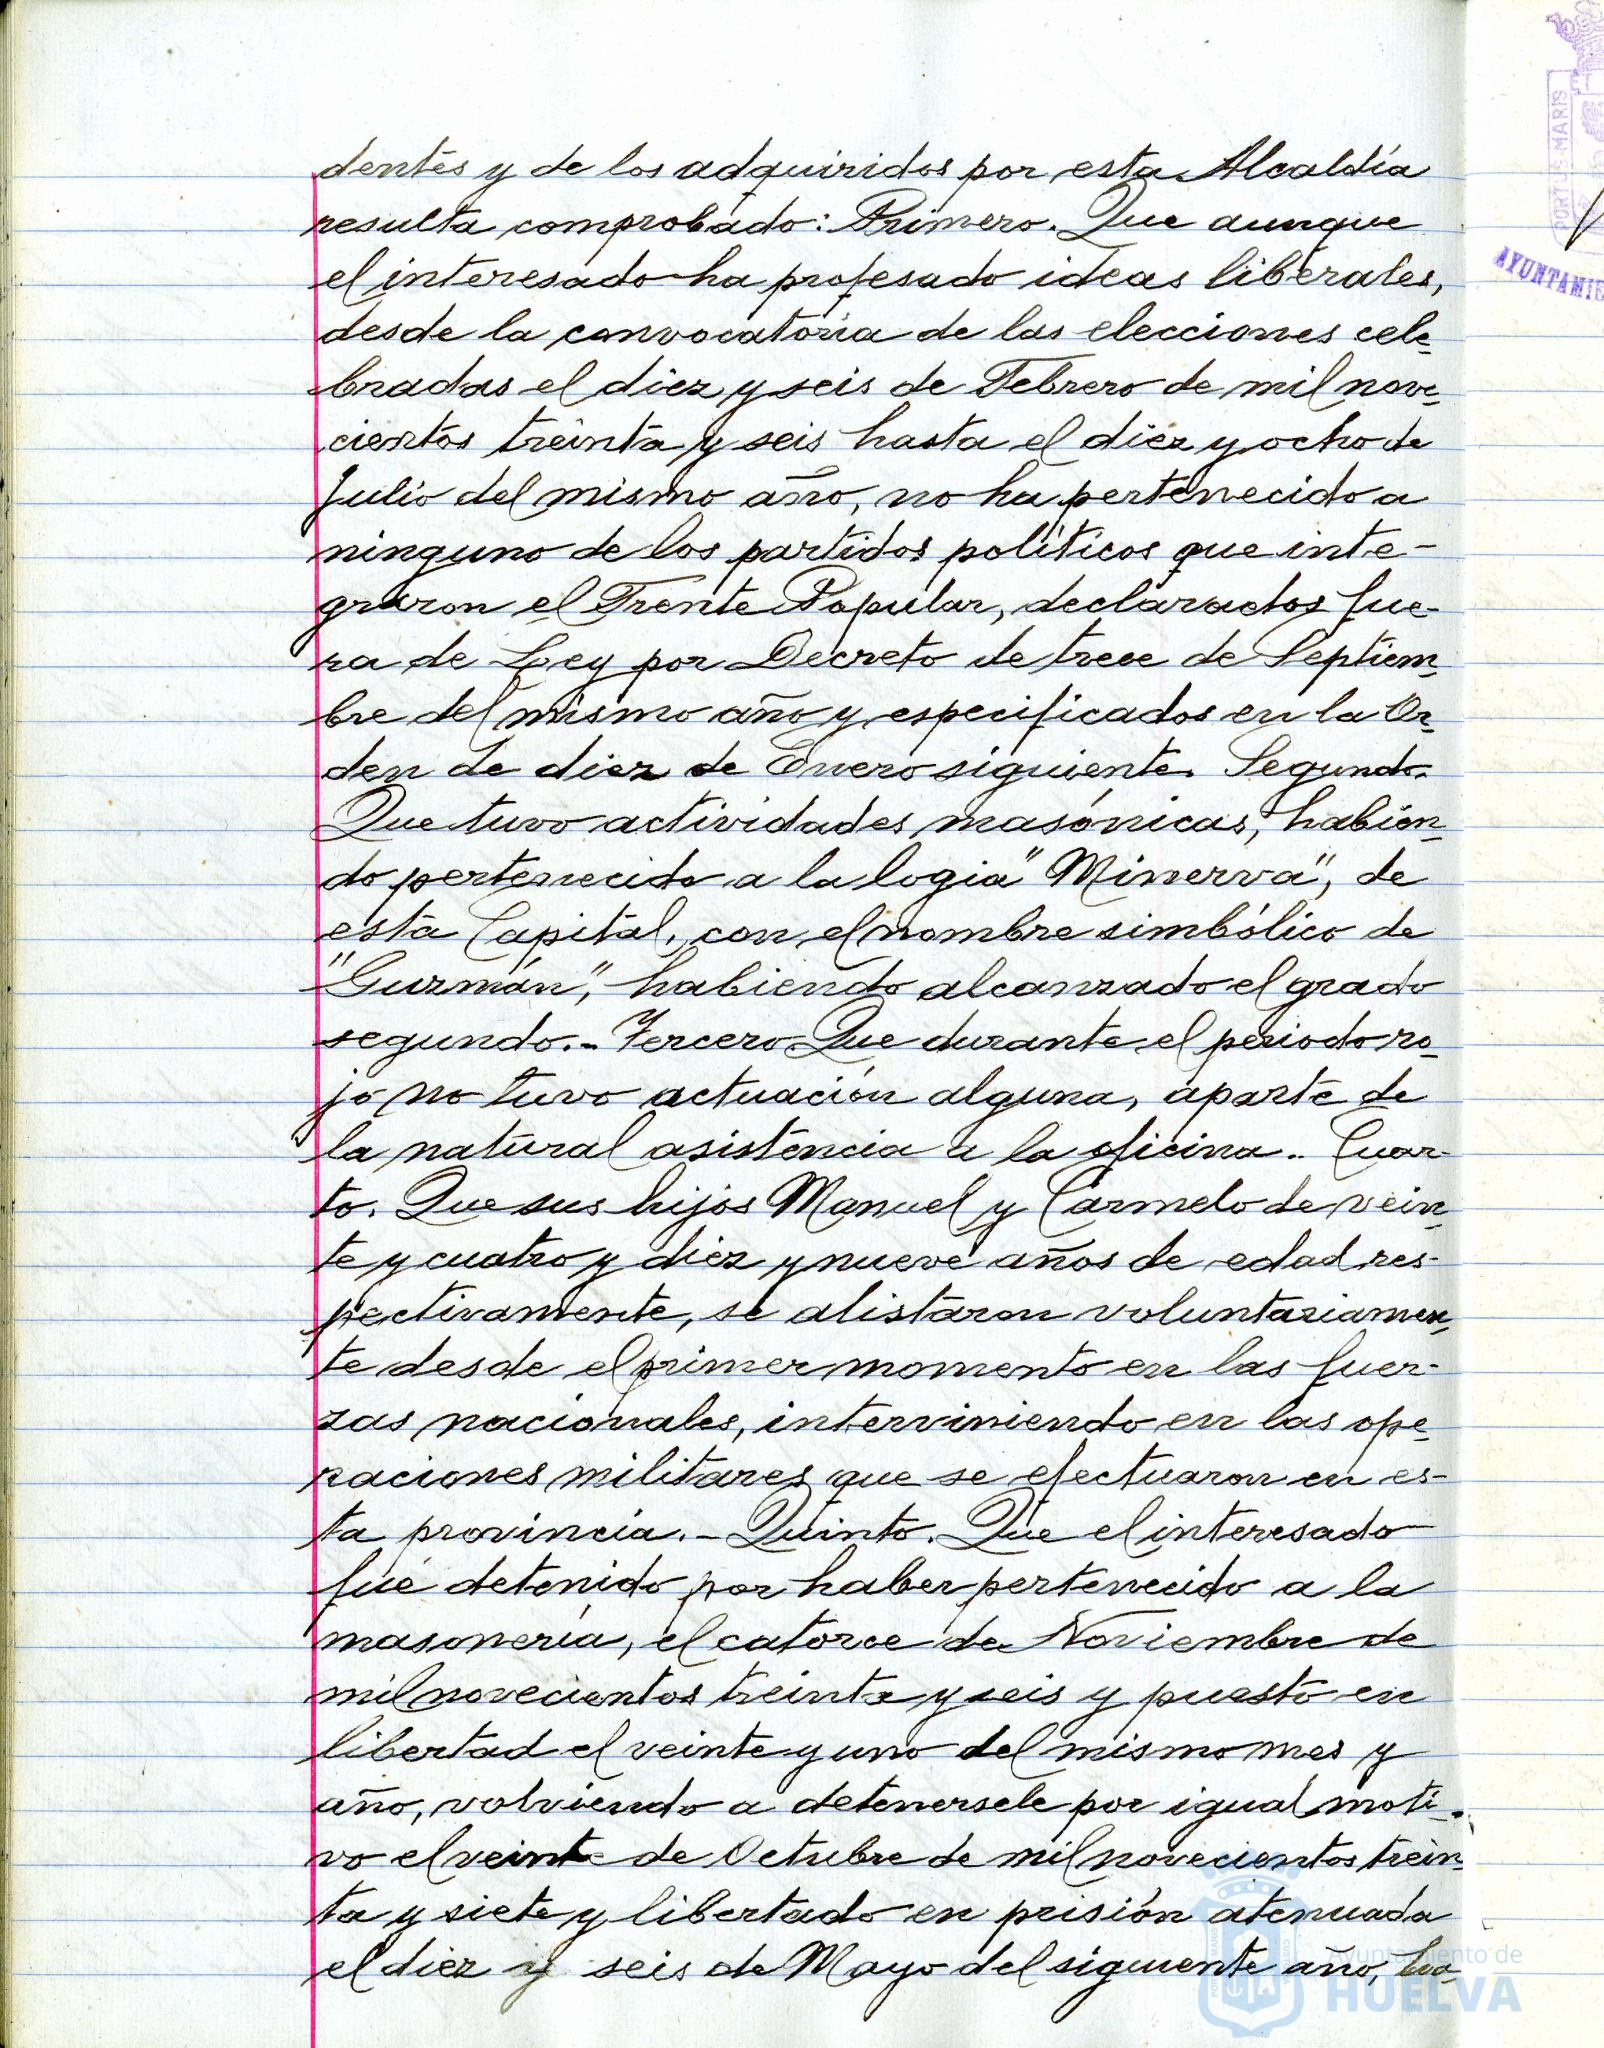 dentes y de los adquiridos por esta Alcaldía
resulta comprobado: Primero. Que aunque
el interesado ha profesado ideas liberales,
desde la convocatoria de las elecciones cele-
bradas el diez y seis de Febrero de mil nove-
cientos treinta y seis hasta el diez y ocho de
Julio del mismo año, no ha pertenecido a
ninguno de los partidos políticos que inte-
graron el Frente Popular, declarados fue-
ra de Ley por Decreto de trece de Septiem-
bre del mismo año y especificados en la Or-
den de diez de Enero siguiente. Segundo.
Que tuvo actividades masónicas, habien-
do pertenecido a la logia "Minerva", de
esta Capital, con el nombre simbólico de
"Guzmán", habiendo alcanzado el grado
segundo.- Tercero. Que durante el periodo ro-
jo no tuvo actuación alguna, aparte de
la natural asistencia a la oficina.- Cuar-
to. Que sus hijos Manuel y Carmelo de vein-
te y cuatro y diez y nueve años de edad res-
pectivamente, se alistaron voluntariamen-
te desde el primer momento en las fuer-
zas nacionales, interviniendo en las ope-
raciones militares que se efectuaron en es-
ta provincia.- Quinto. Que el interesado
fué detenido por haber pertenecido a la
masonería, el catorce de Noviembre de
mil novecientos treinta y seis y puesto en
libertad el veinte y uno del mismo mes y
año, volviendo a detenersele por igual moti-
vo el veinte de Octubre de mil novecientos trein-
ta y siete y libertado en prisión atenuada
el diez y seis de Mayo del siguiente año, ha-
PORTUS MARIS
AYUNTAMIE
Ayuntamiento de
HUELVA